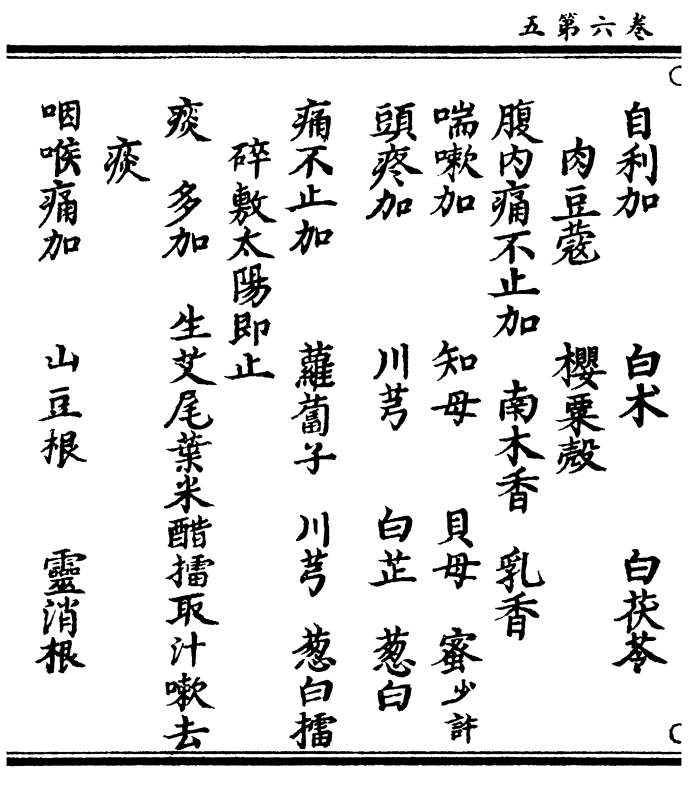 五第六卷
自利加 白朮 白茯苓
肉豆蔻 櫻粟殼
腹内痛不止加 南木香 乳香
喘嗽加 知母 貝母 蜜少許
頭疼加 川芎 白芷 葱白
痛不止加 蘿蔔子 川芎 葱白擂
碎敷太陽即止
痰 多加 生艾尾葉米醋擂取汁嗽去
痰
咽喉痛加 山豆根 靈消根